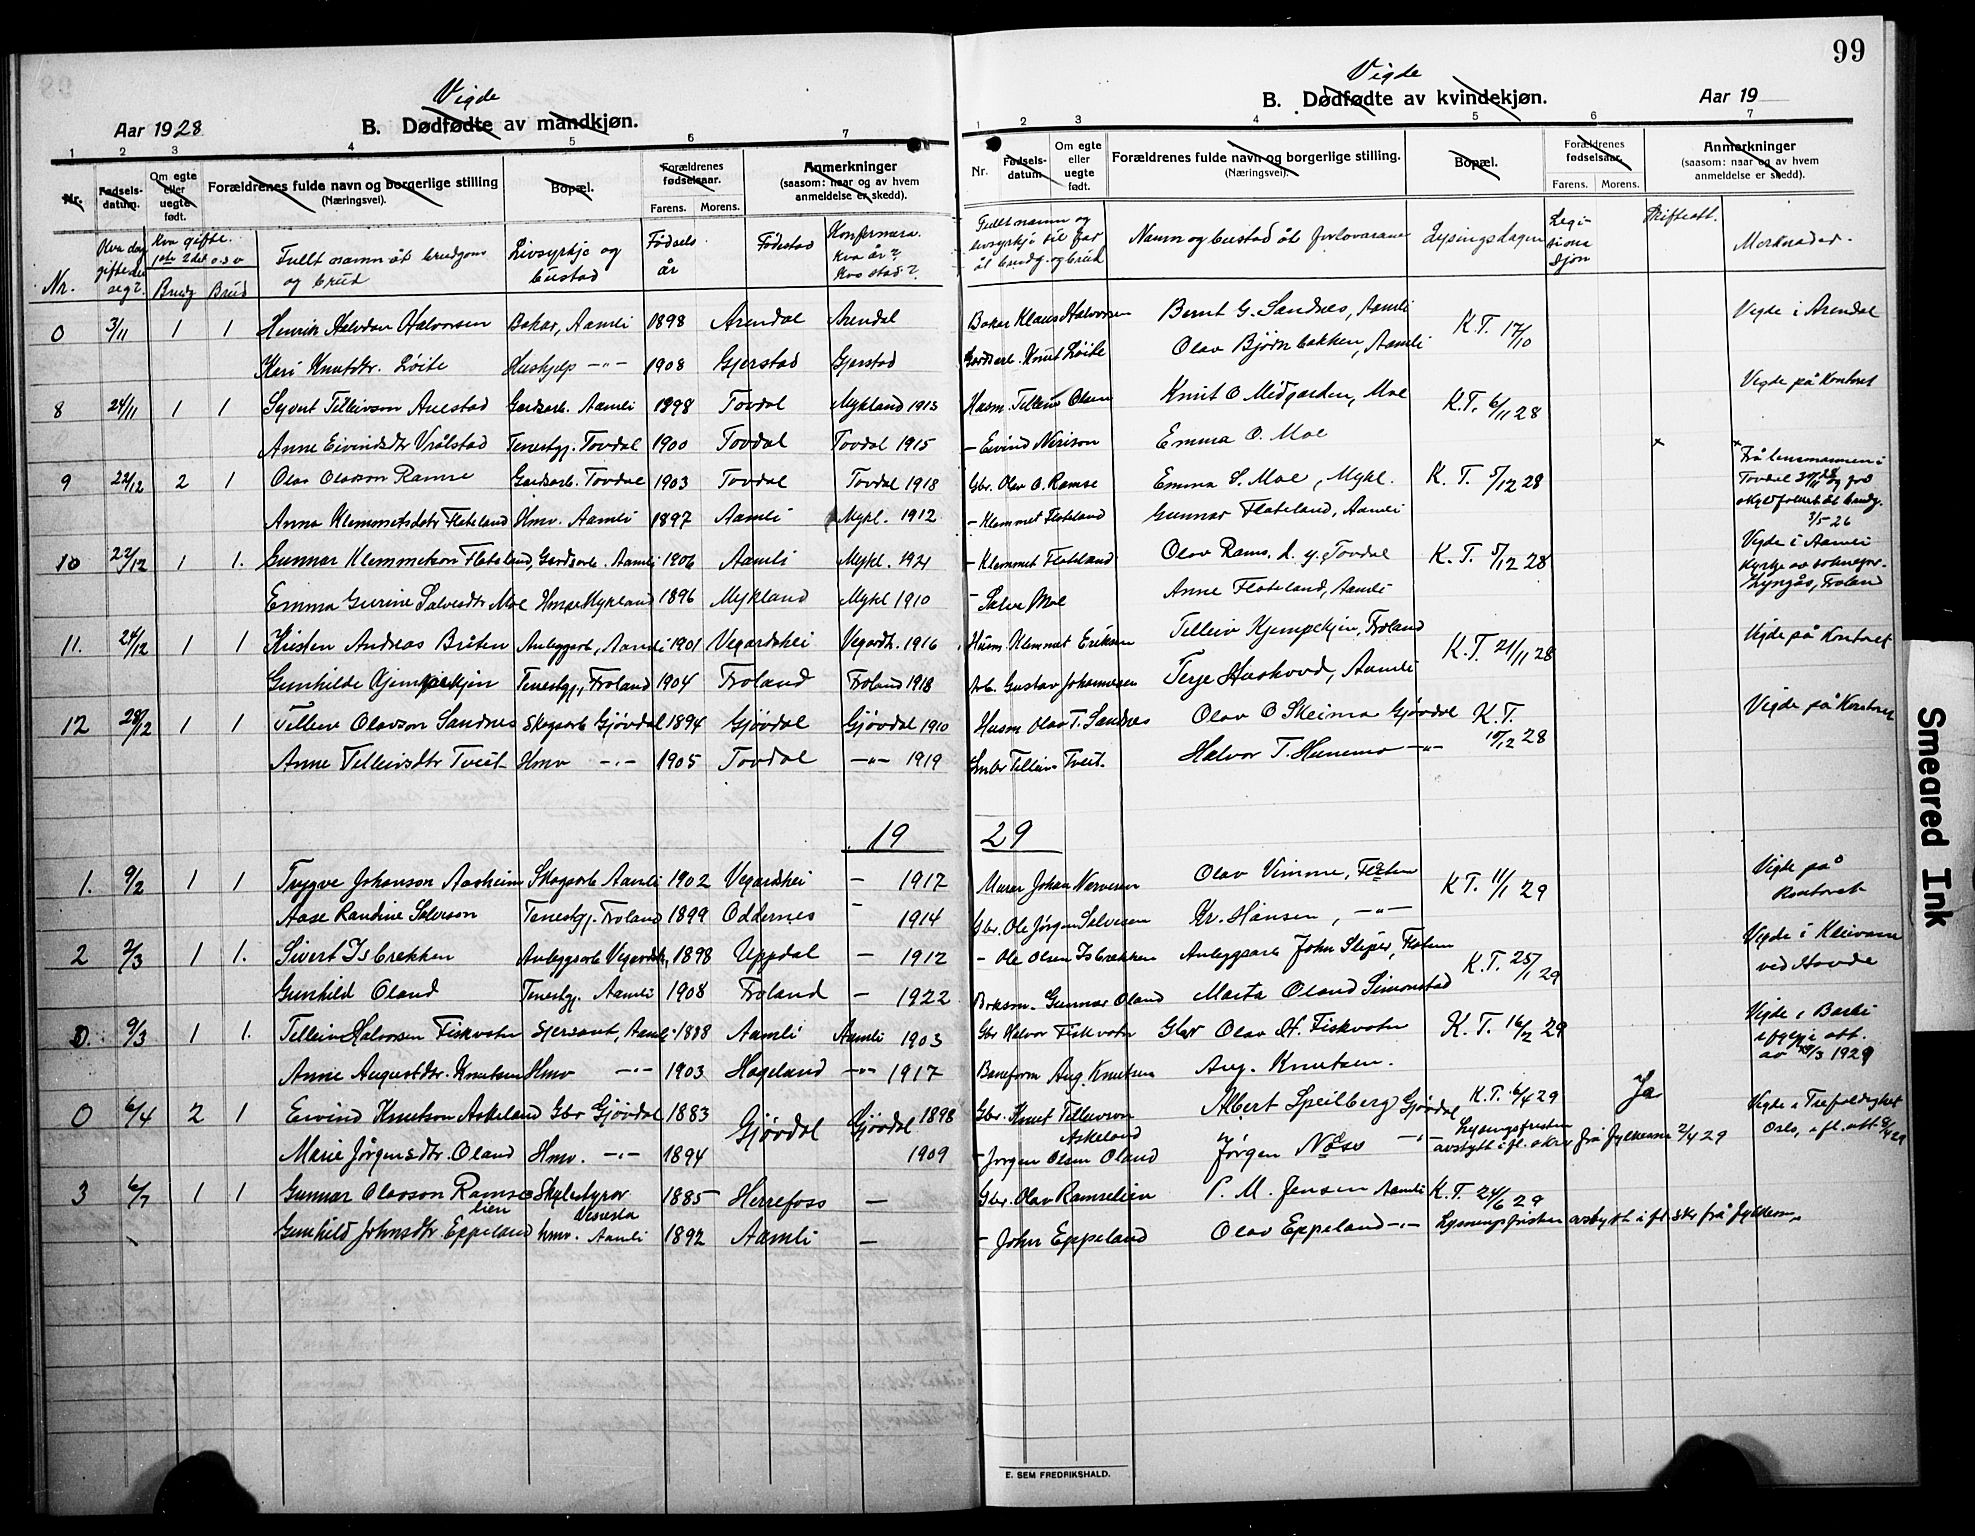 99
Vigde
Aar 1928
B. Dødfødte av mandkjøn.
1 2 3 4 5 6 7
Nr.
Fødsels-datum.
Om egte eller uegte født.
Forældrenes fulde navn og borgerlige stilling (Næringsvei).
Bopæl.
Forældrenes fødselsaar.
Farens. Morens.
Anmerkninger (saasom: naar og av hvem anmeldelse er skedd).
Nr.
Kva dag gifte dei seg?
Kva gifte. fyrste, 2det o.s.v
Brudg Brud
Fullt namn åt brudgom og brud
Livsyrkje og bustad
Fødsels år
Fødestad
Konfirmera. Kva år? Kva stad?
0 3/11 1 1 Henrik Halvdan Halvorsen Bakar, Aamli 1898 Arendal Arendal
Kari Knutsdtr. Løite Hushjelp -"- 1908 Gjerstad Gjerstad
8 24/11 1 1 Syvert Tellevson Aulstad Gardsarb. Aamli 1898 Tovdal Mykland 1913
Anne Eivindsdtr Vrålstad Tenestgj. Tovdal 1900 Tovdal Tovdal 1915
9 22/12 2 1 Olav Olavson Ramse Gardsarb. Tovdal 1903 Tovdal Tovdal 1918
Anna Klemmetsdotr Flateland Hmv. Aamli 1897 Aamli Mykl. 1912
10 22/12 1 1. Gunnar Klemmetson Flateland, Gardsarb. Aamli 1906 Aamli Mykl. 1921
Emma Gurine Salvesdtr Moe Hmv Mykland 1896 Mykland Mykl 1910
11. 24/12 1 1 Kristen Andreas Bråten Anleggsarb, Aamli 1901 Vegardshei Vegardh. 1916
Gunhilde Kjempekjen Tenestgj, Froland 1904 Froland Froland 1918
12 28/12 1 1 Tellev Olavson Sandnes Skogsarb Gjøvdal 1894 Gjøvdal Gjøvdal 1910
Anne Tellevsdtr Tveit Hmv -"- 1905 Tovdal -"- 1919
19
1. 9/2 1 1 Trygve Johanson Aasheim Skogsarb Aamli 1902 Vegardshei - 1917
Aase Randine Salveson Tenestgj. Froland 1899 Oddernes - 1914
2 2/3 1 1. Sivert Isbrekken Anleggsarb Vegardsh. 1898 Uppdal - 1912
Gunhild Oland Tenestgj. Aamli 1908 Froland - 1922
0. 9/3 1 1. Tellev Halvorsen Fiskvatn Sjersant, Aamli 1888 Aamli Aamli 1903
Anne Augustdtr. Knutsen Hmv -"- 1903 Hægeland -"- 1917
0 6/4 2 1 Eivind Knutson Askeland Gbr Gjøvdal 1883 Gjøvdal Gjøvdal 1898
Marie Jørgensdtr. Oland Hmv. -"- 1894 1909
3 6/7 1 1 Gunnar Olavson Ramselien 1885 Herrefoss -
Gunhild Johnsdtr. Eppeland hmv. Aamli 1892 Aamli -
Vigde
B. Dødfødte av kvindekjøn.
Aar 19
1 2 3 4 5 6 7
Nr.
Fødsels-datum.
Om egte eller uegte født.
Forældrenes fulde navn og borgerlige stilling. (Næringsvei).
Bopæl.
Forældrenes fødselsaar.
Farens. Morens.
Anmerkninger (saasom: naar og av hvem anmeldelse er skedd).
Fullt namn og livsyrkje til far åt brudg. og brud
Namn og bustad åt forlovarane
Lysingsdagen
Legi-tima-sjon
Skifteatt.
Merknader.
Bakar Klaus Halvorsen Bernt G. Sandnes, Aamli K.T. 17/10 Vigde i Arendal
Gardsarb. Knut Løite Olav Bjørnbakken, Aamli
Husm. Tellev Olsen Knut O. Midgarden, Moe K.T. 6/11 28 Vigde på Kontoret
- Eivind Nirison Emma O. Moe
Gbr. Olav O. Ramse Emma S. Moe, Mykl. K.T. 5/12 28 x x Frå lensmannen i Tovdal
- Klemmet Flateland Gunnar Flateland, Aamli 3/5-26
- Klemmet Flateland Olav Rams. d. y. Tovdal K.T. 5/12 28 Vigde i Aamli Kyrkje av sokneprest Lyngås, Froland
- Salve Moe Anne Flateland, Aamli
Husm. Klemmet Eriksen Tellev Kjempekjen, Froland K.T. 21/11 28 Vigde på Kontoret
Arb. Gustav Johannesen Terje Haskovd, Aamli
Husm Olav T. Sandnes Olav O Skeimo Gjøvdal K.T. 10/12 28 Vigde på Kontoret
Gmbr Tellev Tveit. Halvor T. Hunemo -"-
29
Murar Johan Nærvesen Olav Vimme, Flaten K.T. 11/1 29 Vigde på Kontoret
Gbr. Ole Jørgen Salvesen Kr. Hansen, -"-
- Ole Olsen Isbrekken Anleggsarb John Sleper, Flaten K.T. 25/1 29 Vigde i Kleivane ved Hovde
Gunnar Oland Marta Oland Simonstad
Gbr Halvor Fiskvatn Gbr Olav H. Fiskvatn K.T. 16/2 29 Vigde i Barbi ifylgje att. av 19/3 1929
Baneform Aug. Knutsen Aug. Knutsen.
Gbr. Knut Tellevson Askeland Albert Speilberg Gjøvdal K.T. 6/4 29 Ja Vigde i Trefoldighet Oslo, ifl. att 9/4 29
- Jørgen Olsen Oland Jørgen Næs -"- Lysingsfristen avstytt ifl. skr frå fylkesm 2/4 29
Gbr. Olav Ramselien P. M. Jensen Aamli K.T. 24/6 29
- John Eppeland Olav Eppeland -"- Lysningsfristen avstytt ifl skr frå fylkesm.
E. SEM FREDRIKSHALD.
Smeared Ink